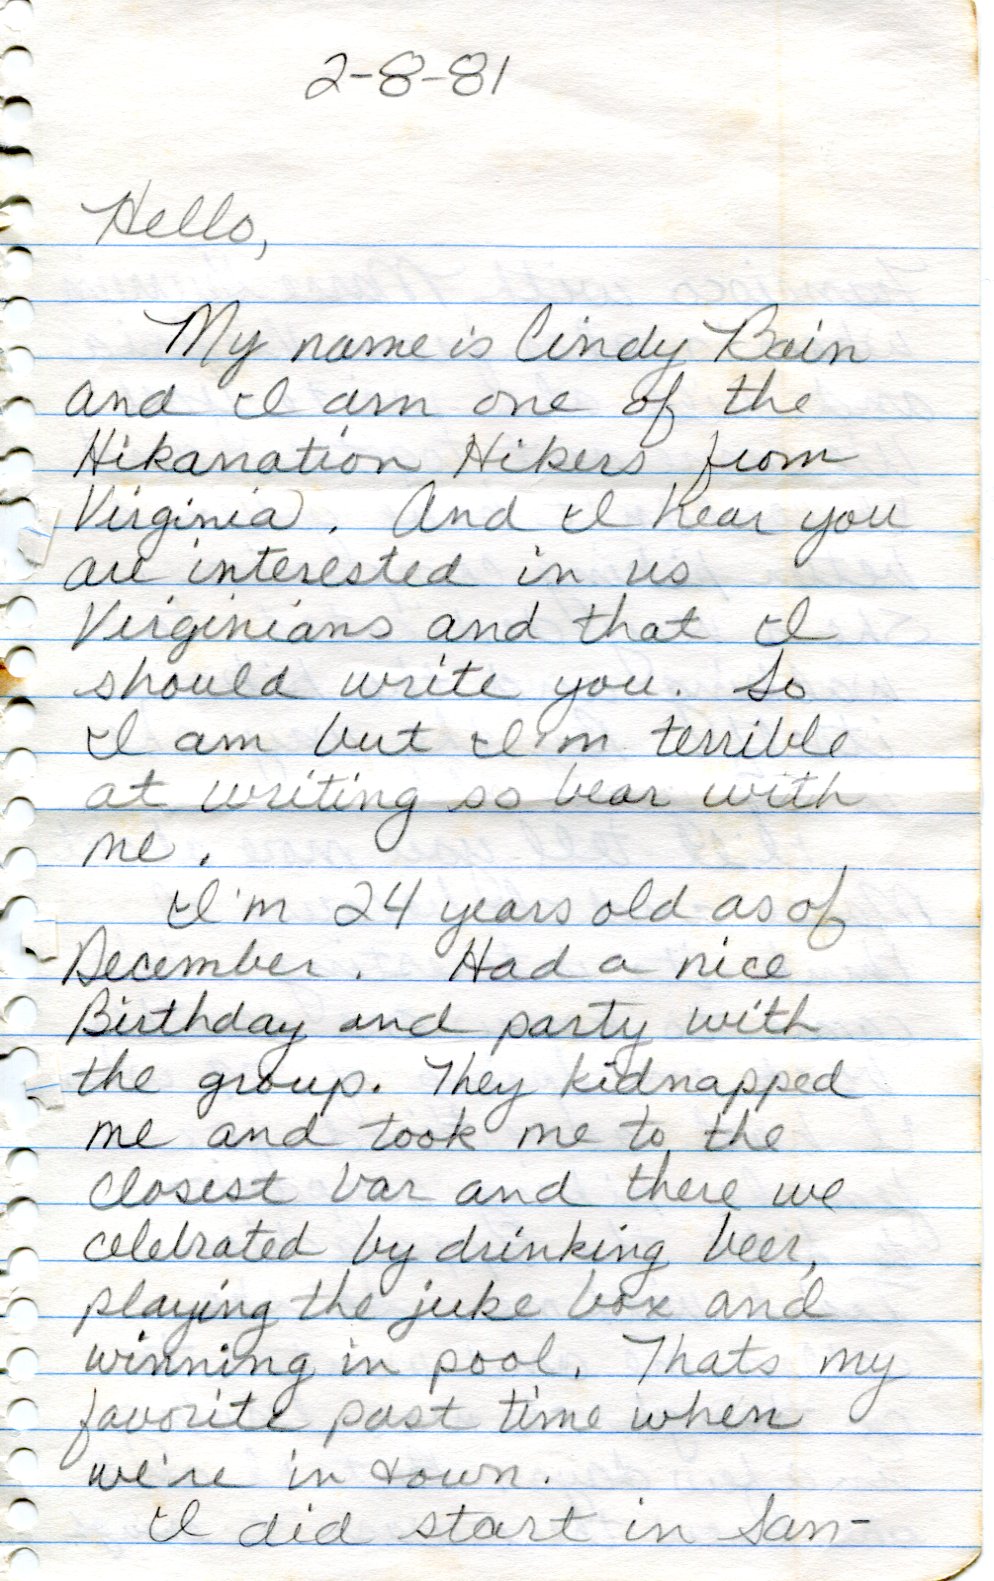 2-8-81
Hello,
My name is Cindy Bain
and I am one of the
Hikanation Hikers from
Virginia. And I hear you
are interested in us
Virginians and that I
should write you. So
I am but I'm terrible
at writing so bear with
me.
I'm 24 years old as of
December. Had a nice
Birthday and party with
the group. They kidnapped
me and took me to the
closest bar and there we
celebrated by drinking beer,
playing the juke box and
winning in pool. Thats my
favorite past time when
we're in town.
I did start in San-